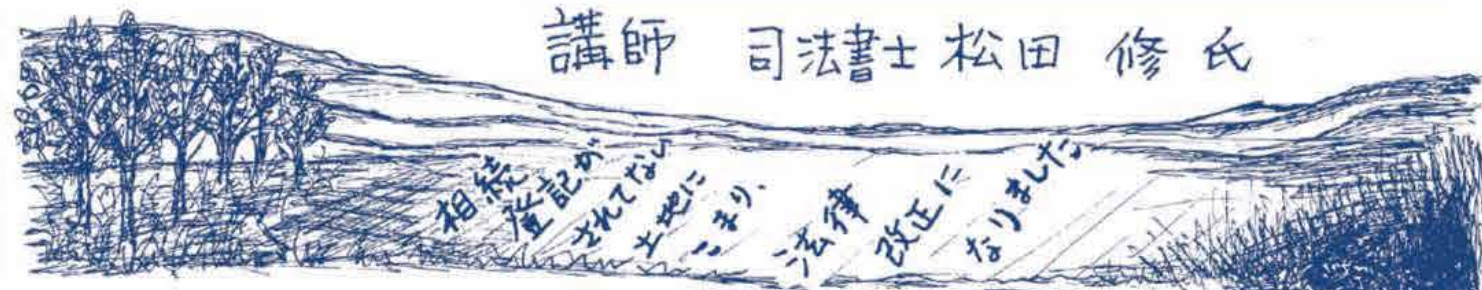 講師 司法書士 松田 修 氏
相続
登記が
されてない
土地に
こまり、
法律
改正に
なりました